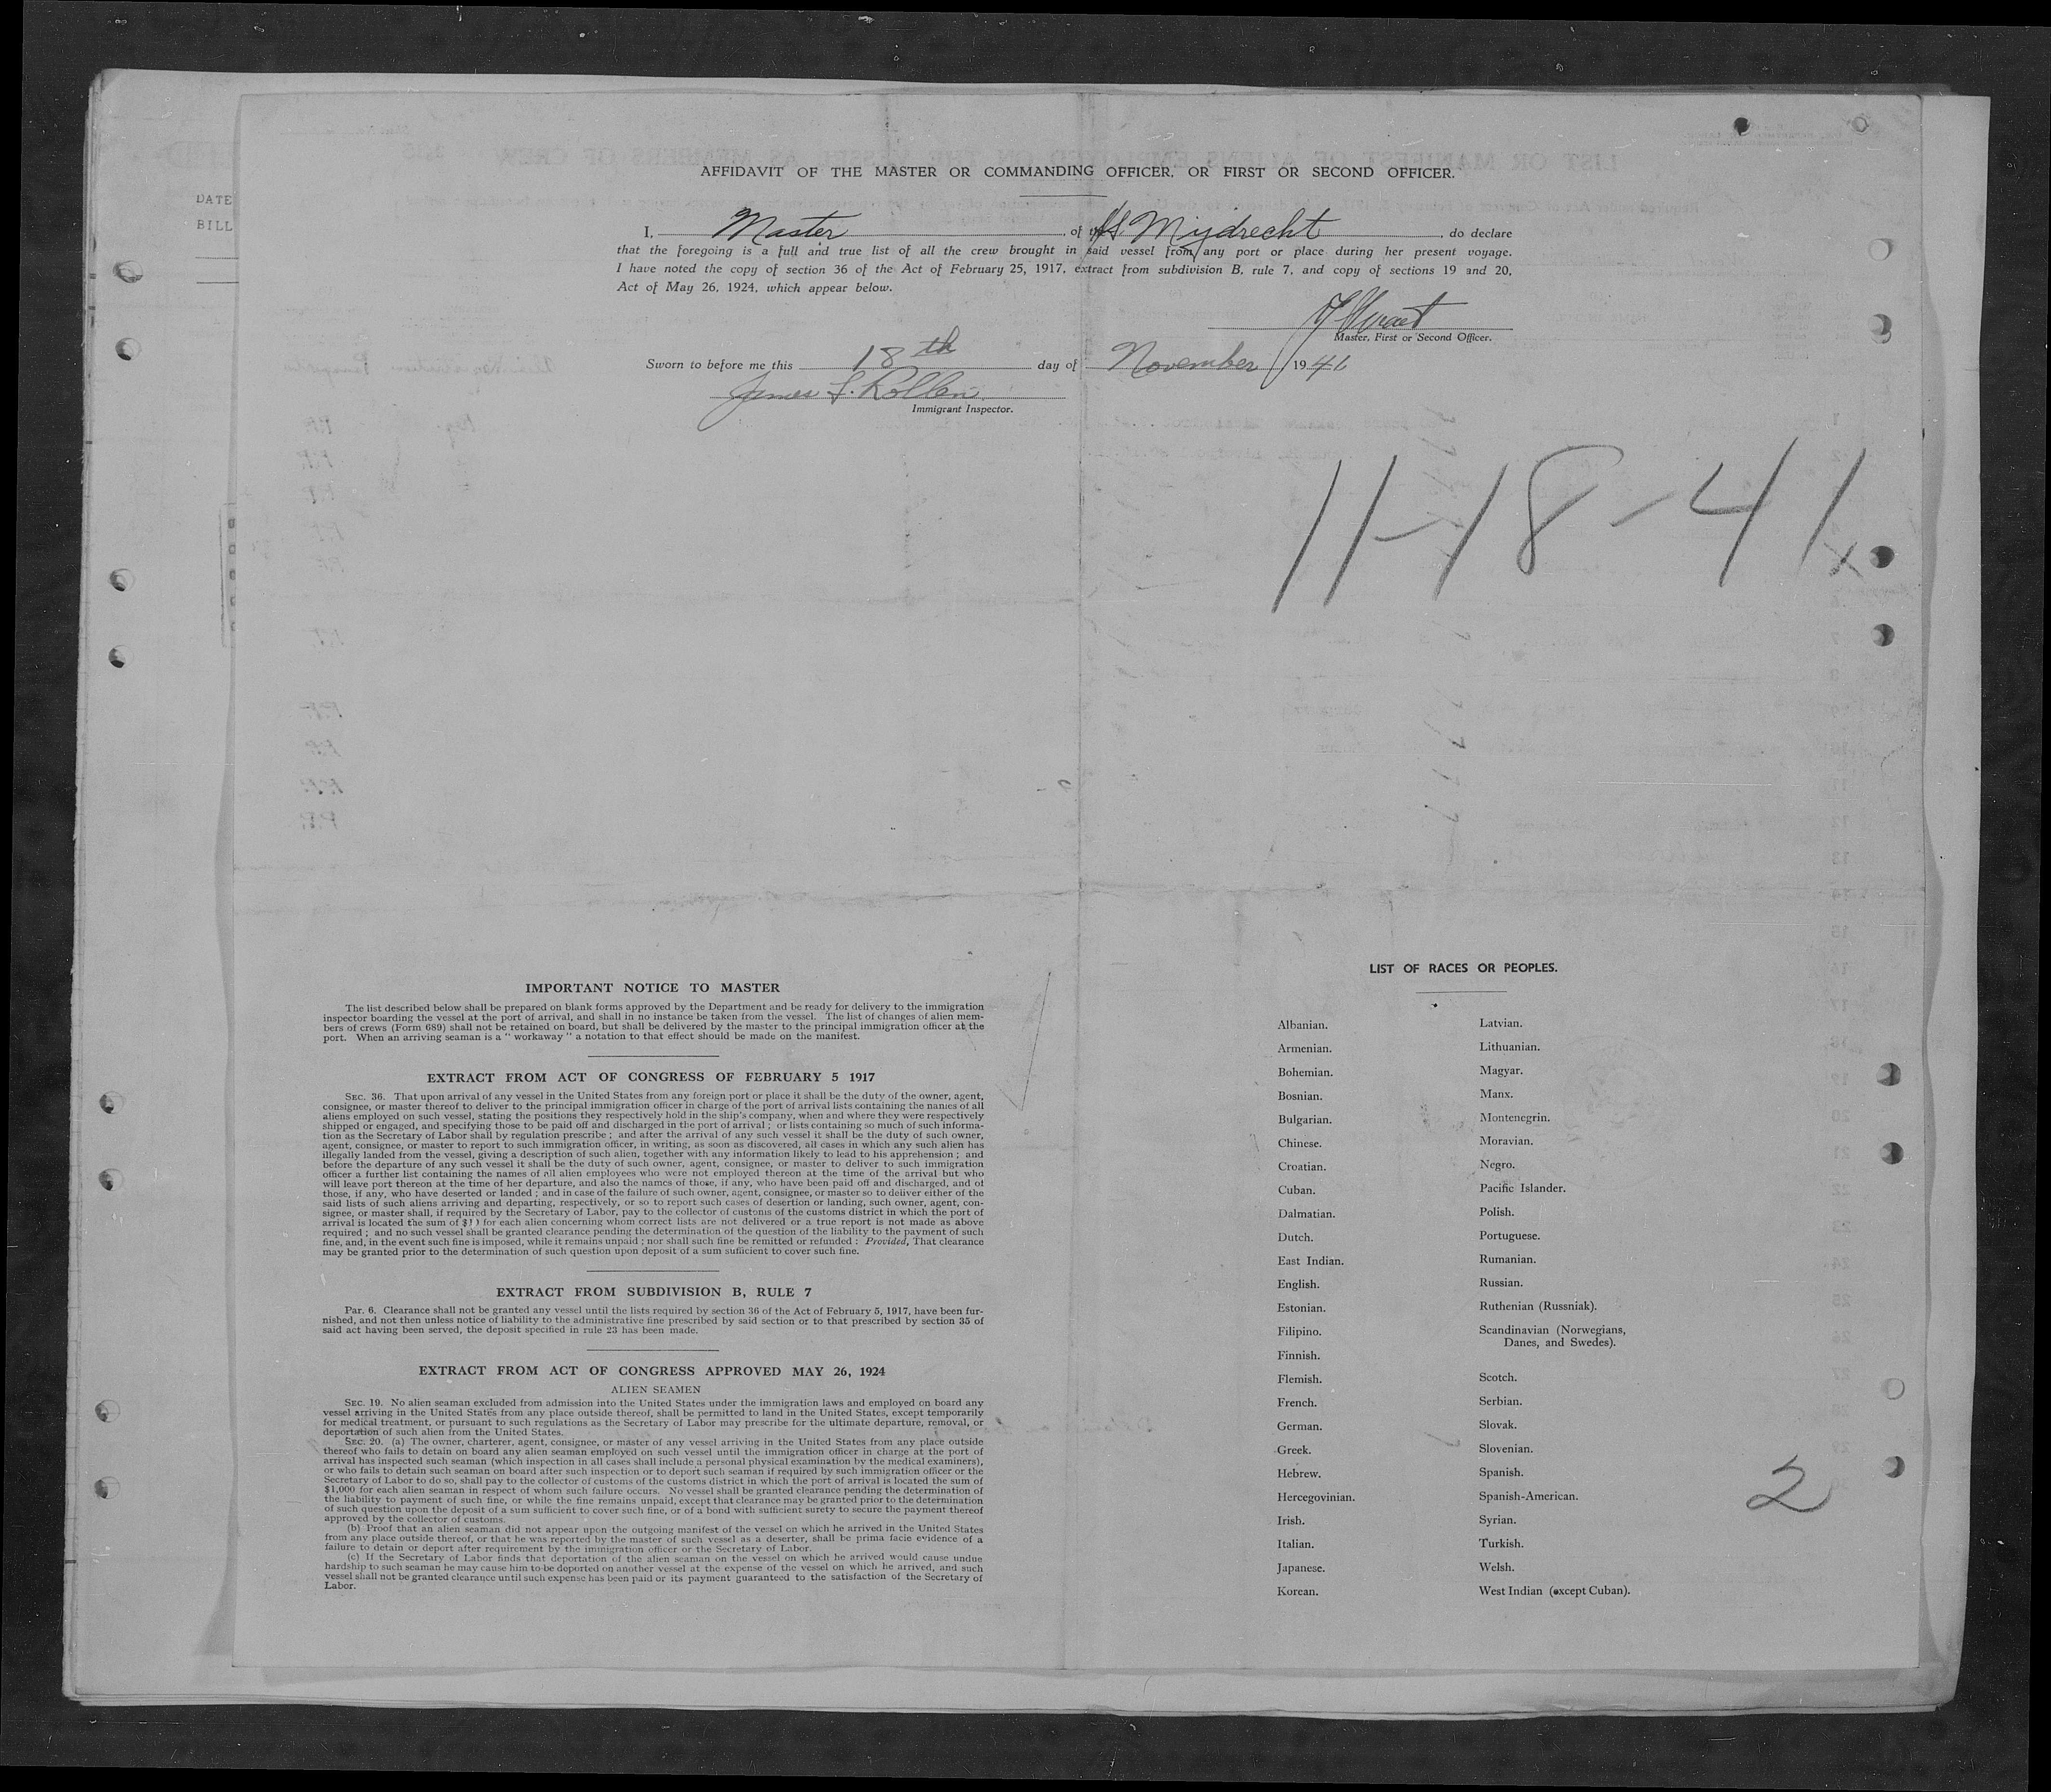 DATE
BILL
AFFIDAVIT OF THE MASTER OR COMMANDING OFFICER, OR FIRST OR SECOND OFFICER.
I, Master of the SS Mijdrecht, do declare
that the foregoing is a full and true list of all the crew brought in said vessel from any port or place during her present voyage.
I have noted the copy of section 36 of the Act of February 25, 1917, extract from subdivision B, rule 7, and copy of sections 19 and 20,
Act of May 26, 1924, which appear below.
Master, First or Second Officer.
Sworn to before me this 18th day of November 1941
James S.
Immigrant Inspector.
11-18-41
IMPORTANT NOTICE TO MASTER
The list described below shall be prepared on blank forms approved by the Department and be ready for delivery to the immigration
inspector boarding the vessel at the port of arrival, and shall in no instance be taken from the vessel. The list of changes of alien mem-
bers of crews (Form 689) shall not be retained on board, but shall be delivered by the master to the principal immigration officer at the
port. When an arriving seaman is a " workaway " a notation to that effect should be made on the manifest.
EXTRACT FROM ACT OF CONGRESS OF FEBRUARY 5 1917
SEC. 36. That upon arrival of any vessel in the United States from any foreign port or place it shall be the duty of the owner, agent,
consignee, or master thereof to deliver to the principal immigration officer in charge of the port of arrival lists containing the names of all
aliens employed on such vessel, stating the positions they respectively hold in the ship's company, when and where they were respectively
shipped or engaged, and specifying those to be paid off and discharged in the port of arrival ; or lists containing so much of such informa-
tion as the Secretary of Labor shall by regulation prescribe ; and after the arrival of any such vessel it shall be the duty of such owner,
agent, consignee, or master to report to such immigration officer, in writing, as soon as discovered, all cases in which any such alien has
illegally landed from the vessel, giving a description of such alien, together with any information likely to lead to his apprehension ; and
before the departure of any such vessel it shall be the duty of such owner, agent, consignee, or master to deliver to such immigration
officer a further list containing the names of all alien employees who were not employed thereon at the time of the arrival but who
will leave port thereon at the time of her departure, and also the names of those, if any, who have been paid off and discharged, and of
those, if any, who have deserted or landed ; and in case of the failure of such owner, agent, consignee, or master so to deliver either of the
said lists of such aliens arriving and departing, respectively, or so to report such cases of desertion or landing, such owner, agent, con-
signee, or master shall, if required by the Secretary of Labor, pay to the collector of customs of the customs district in which the port of
arrival is located the sum of $10 for each alien concerning whom correct lists are not delivered or a true report is not made as above
required ; and no such vessel shall be granted clearance pending the determination of the question of the liability to the payment of such
fine, and, in the event such fine is imposed, while it remains unpaid ; nor shall such fine be remitted or refunded : Provided, That clearance
may be granted prior to the determination of such question upon deposit of a sum sufficient to cover such fine.
EXTRACT FROM SUBDIVISION B, RULE 7
Par. 6. Clearance shall not be granted any vessel until the lists required by section 36 of the Act of February 5, 1917, have been fur-
nished, and not then unless notice of liability to the administrative fine prescribed by said section or to that prescribed by section 35 of
said act having been served, the deposit specified in rule 23 has been made.
EXTRACT FROM ACT OF CONGRESS APPROVED MAY 26, 1924
ALIEN SEAMEN
SEC. 19. No alien seaman excluded from admission into the United States under the immigration laws and employed on board any
vessel arriving in the United States from any place outside thereof, shall be permitted to land in the United States, except temporarily
for medical treatment, or pursuant to such regulations as the Secretary of Labor may prescribe for the ultimate departure, removal, or
deportation of such alien from the United States.
SEC. 20. (a) The owner, charterer, agent, consignee, or master of any vessel arriving in the United States from any place outside
thereof who fails to detain on board any alien seaman employed on such vessel until the immigration officer in charge at the port of
arrival has inspected such seaman (which inspection in all cases shall include a personal physical examination by the medical examiners),
or who fails to detain such seaman on board after such inspection or to deport such seaman if required by such immigration officer or the
Secretary of Labor to do so, shall pay to the collector of customs of the customs district in which the port of arrival is located the sum of
$1,000 for each alien seaman in respect of whom such failure occurs. No vessel shall be granted clearance pending the determination of
the liability to payment of such fine, or while the fine remains unpaid, except that clearance may be granted prior to the determination
of such question upon the deposit of a sum sufficient to cover such fine, or of a bond with sufficient surety to secure the payment thereof
approved by the collector of customs.
(b) Proof that an alien seaman did not appear upon the outgoing manifest of the vessel on which he arrived in the United States
from any place outside thereof, or that he was reported by the master of such vessel as a deserter, shall be prima facie evidence of a
failure to detain or deport after requirement by the immigration officer or the Secretary of Labor.
(c) If the Secretary of Labor finds that deportation of the alien seaman on the vessel on which he arrived would cause undue
hardship to such seaman he may cause him to be deported on another vessel at the expense of the vessel on which he arrived, and such
vessel shall not be granted clearance until such expense has been paid or its payment guaranteed to the satisfaction of the Secretary of
Labor.
LIST OF RACES OR PEOPLES.
Albanian.
Armenian.
Bohemian.
Bosnian.
Bulgarian.
Chinese.
Croatian.
Cuban.
Dalmatian.
Dutch.
East Indian.
English.
Estonian.
Filipino.
Finnish.
Flemish.
French.
German.
Greek.
Hebrew.
Hercegovinian.
Irish.
Italian.
Japanese.
Korean.
Latvian.
Lithuanian.
Magyar.
Manx.
Montenegrin.
Moravian.
Negro.
Pacific Islander.
Polish.
Portuguese.
Rumanian.
Russian.
Ruthenian (Russniak).
Scandinavian (Norwegians,
Danes, and Swedes).
Scotch.
Serbian.
Slovak.
Slovenian.
Spanish.
Spanish-American.
Syrian.
Turkish.
Welsh.
West Indian (except Cuban).
2